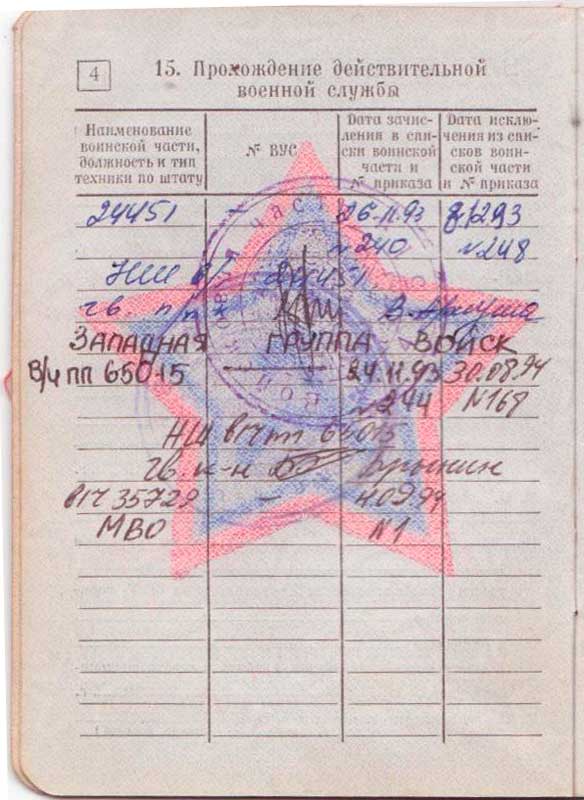 4
15. Прохождение действительной
военной службы
Наименование воинской части, должность и тип техники по штату
№ ВУС
Дата зачисления в списки воинской части и № приказа
Дата исключения из списков воинской части и № приказа
24451 – 26.11.93
№ 240 № 248
НШ в/ч 24451
гв. п/п-к
ЗАПАДНАЯ ГРУППА ВОЙСК
В/ч пп 65015 — 24.11.93 30.08.94
№ 244 №168
НШ в/ч пп 65015
гв. к-н
в/ч 35729 –
МВО №1